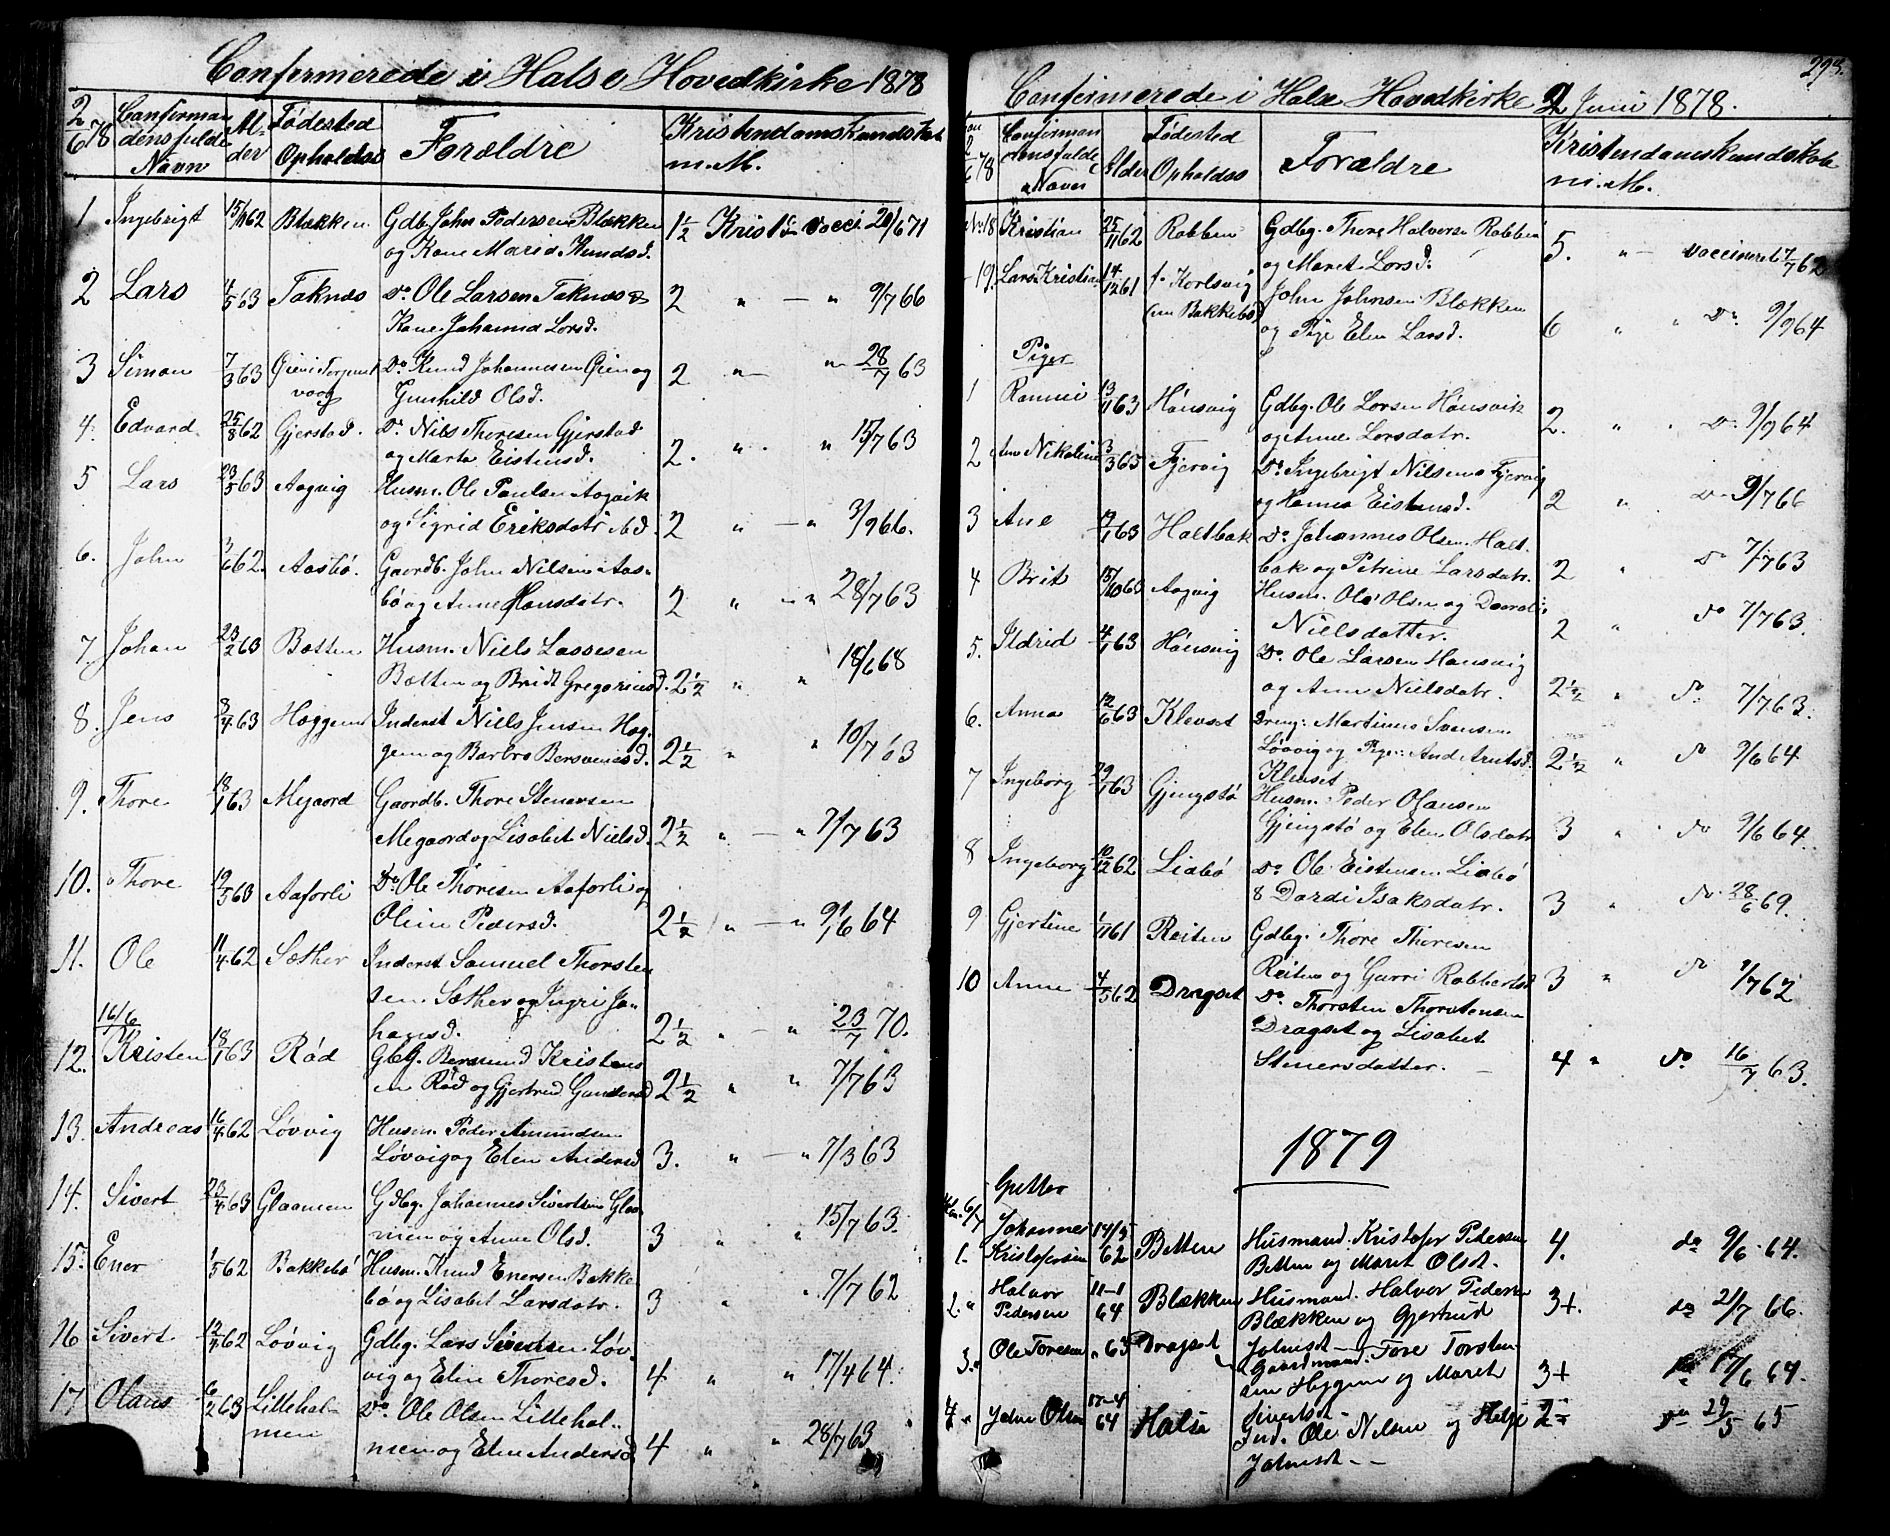 Confirmerede i Halse Hovedkirke 1878
2/6 78 Confirman Al- Fødested Forældre Kristendomskundskab
densfulde der Opholds m. M.
Navn
1 Ingebrigt 62 Blækken Gdb. John Pedersen Blækken 1½ Krist: vacci.
og Kone Mared Knudsd.
2 Lars 4/5 63 Taknæs Do Ole Larsen Taknæs & 2 " — " 9/7 66
Kone Johanna Larsd.
3 Simon 7/3 63 Do Knud Johannesen Øien og 2 " — " 28/7 63
vaag Gunhild Olsd.
4. Edvard 25/8 62 Gjerstad. Do Nils Thoresen Gjerstad 2. " " 15/7 63
og Marta Eistensd.
5 Lars 23/5 63 Aagvig Husm. Ole Paulsen Aagvik
og Sigrid Eriksdatr 2 " — " 3/9 66.
6. John 62. Aasbø. Gaardb. John Nilsen Aas-
bø og Anne Hansdatr. 2 " — " 28/7 63
7. Johan 23/2 63 Bætten Husm. Niels Lassesen 18/6 68
Bætten og Bridt Gregoriusd. 2½ " "
8. Jens 8/4 63 Hæggem Inderst Niels Jensen Hæg-
gem og Barbro Bersvensd. 2½ " " 10/7 63
9. Thore 63 Megaard Gaardb. Thore Stenersen
Megaard og Lisabet Nielsd. 2½ " — " 7/7 63
10. Thore 19/5 60 Aaforli Do Ole Thoresen Aaforli og
Oline Pedersd. 2½ " — " 9/6 64
11. Ole 11/4 62 Sæther Inderst Samuel Thorsten
sen Sæther og Ingri Jo-
16/6 hansd. 2½ " — " 23/7 70.
12. Kristen 18/1 63 Rød Gbg. Bersvend Kristens
en Rød og Gjertrud Gundersd 2½ " " 7/7 63
13. Andreas 16/4 62 Løvvig Husm. Peder Amundsen
Løvvig og Elen Andersd 3. " — " 7/3 63
14. Sivert 23/4 63 Glaamen Gdbg. Johannes Sivertsen Glaa-
men og Anne Olsd. 3 " " 15/7 63.
15. Ener 1/5 62 Bakkebø Husm. Knud Enersen Bakke
bø og Lisabet Larsdatr. 3 " " 7/7 62
16 Sivert 62 Løvvig Gdbg. Lars Sivertsen Løv-
vig og Elen Thoresd. 4 " " 17/4 64.
17 Olaus 6/2 63 Lillehol- Do. Ole Olsen Lillehol-
men men og Elen Andersd 4 " " 28/7 63
293.
Confirmerede i Halse Hovedkirke 2 Juni 1878.
2/6 78 Confirman Alder Fødested Forældre Kristendomskundskab
densfulde Opholds m. M.
Navn
No 18 Kristian 25/11 62 Rabben Gdbg. Thore Halvorse Rabben 5. " — vaccineret 7/7 62
og Maret Larsd.
19. Lars Kristian 14/12 61 f. Korlsvig John Johnsen Blækken
(nu Bakkebø) og Pige Elen Larsd. 6 " " Do 9/9 64
Piger
1 Ranni 63 Hønsvig Gdbg. Ole Larsen Hønsvik
og Anne Larsdatr. 2. " " Do 9/9 64
2 Ane Nikoline 3/3 63 Fjervig Do Ingebrigt Nilsens Fjervig
og Hanna Eistensd. 2 " Do 9/7 66
3 Ane 63 Haltbak Do Johannes Olsen Halt-
bak og Petrine Larsdatr. 2 " Do 7/7 63
4 Brit 63 Aagvig Husm. Ole Olsen og Dordi
Nielsdatter. 2 " Do 7/7 63.
5. Ildrid 63 Hønsvig Do. Ole Larsen Hønsvig
og Ann Nielsdatr. 2½ " Do 7/7 63.
6. Anna 12/6 63 Klevset Dreng: Martinus Svensen
Løvvig og Pige: And Arntsd. 2½ " Do 9/6 64
Klevset
7 Ingeborg 63 Gjengstø Husm. Peder Olausen
Gjengstø og Elen Olsdatr 3 " " Do 9/6 64.
8 Ingeborg 10/12 62 Liabø Do. Ole Eistensen Liabø
& Dardi Isaksdatr. 3 " Do 28/6 69.
9 Gjertine 61 Reiten Gdbg. Thore Thoresen
Reiten og Gurri Robbertsd 3 " Do 1/7 62
10 Anne 4/5 62 Dragset Do. Thorsten Thorstensen
Dragset og Lisabet
Stenersdatter. 4 " Do. 16/7 63.
1879
Gutter
6/7
1. Johannes 14/5 Betten Husmand. Kristofer Pedersen 4. do 9/6. 64.
Kristofersen 62 Betten og Maret Olsdt.
2. " Halvor 11-1 Blækken Husmand. Halvor Pedersen 3+. do 21/7 66.
Pedersen 64 Blækken og Gjertrud
Johnsdt
3. " Ole Toresen " 63 Dragset Gaardmand. Tore Torsten-
sen Hyggem og Maret 3+ do 17/6 64.
Sivertsdt
4 " John Olsen 17-4 Halse Ind. Ole Nilsen og Helje 2 do 29/5 65
64 Johnsdt